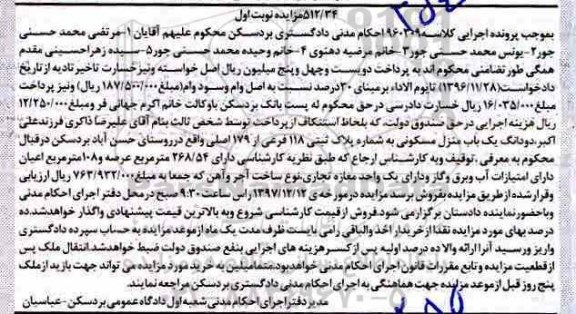 ۵۱۲/۳۴مزایده نوبت اول
بموجب پرونده اجرایی کلاسه ۹۶۰۳۰۹ احکام مدنی دادگستری بردسکن محکوم علیهم آقایان ۱-مرتضی محمد حسنی
جور۲-یونس محمد حسنی جور۳-خانم مرضیه دهنوی ۴-خانم وحیده محمد حسنی جور۵-سیده زهراحسینی مقدم
همگی طور تضامنی محکوم اند به پرداخت دویست وچهل وپنج میلیون ریال اصل خواسته ونیز خسارت تاخیر تادیه از تاریخ
دادخواست(۱۳۹۶/۱۱/۲۸) تایوم الاداء بر مبنای ۳۰درصد نسبت به اصل وام وسود وام(مبلغ ۱۸۷/۵۰۰/۰۰۰ ریال) ونیز پرداخت
مبلغ ۱۶/۰۳۵/۰۰۰ ریال خسارت دادرسی در حق محکوم له پست بانک بردسکن باوکالت خانم اکرم جهانی فر ومبلغ ۱۲/۲۵۰/۰۰۰
ریال هزینه اجرایی در حق صندوق دولت، که بلحاظ استنکاف از پرداخت توسط شخص ثالث بنام آقای علیرضا ذاکری فرزند علی
اکبر،دودانگ یک باب منزل مسکونی به شماره پلاک ثبتی ۱۱۸ فرعی از ۱۷۹ اصلی واقع در روستای حسن آباد بردسکن در قبال
محکوم به معرفی ،توقیف وبه کارشناس ارجاع که طبق نظریه کارشناسی دارای ۲۶۸/۵۴ مترمربع عرصه و۱۰۸مترمربع اعیان
دارای امتیازات آب وبرق وگاز ودارای یک واحد مغازه تجاری،نوع ساخت آجر وآهن که جمعا به مبلغ ۷۶۳/۹۳۲/۰۰۰ ریال ارزیابی
وقرار شده از طریق مزایده بفروش برسد مزایده در مورخه ی ۱۳۹۷/۱۲/۱۲ راس ساعت ۹:۳۰ صبح در محل دفتر اجرای احکام مدنی
وباحضور نماینده دادستان برگزار می شود.فروش از قیمت کارشناسی شروع وبه بالاترین قیمت پیشنهادی واگذار خواهد شد.ده
درصد بهای مورد مزایده نقدا از خریدار اخذ والباقی رامی بایست ظرف مدت یک ماه از موعد مزایده به حساب سپرده دادگستری
واریز ورسید آنرا ارائه والا ده درصد اولیه پس از کسر هزینه های اجرایی بنفع صندوق دولت ضبط خواهد شد.انتقال ملک پس
از قطعیت مزایده و تابع مقررات قانون اجرای احکام مدنی خواهد بود.متمایلین به خرید مورد مزایده می تواند جهت بازدید از ملک
پنج روز قبل از موعد مزایده جهت هماهنگی به اجرای احکام مدنی دادگستری بردسکن مراجعه نمایند.
مدیر دفتر اجرای احکام مدنی شعبه اول دادگاه عمومی بردسکن-عباسیان